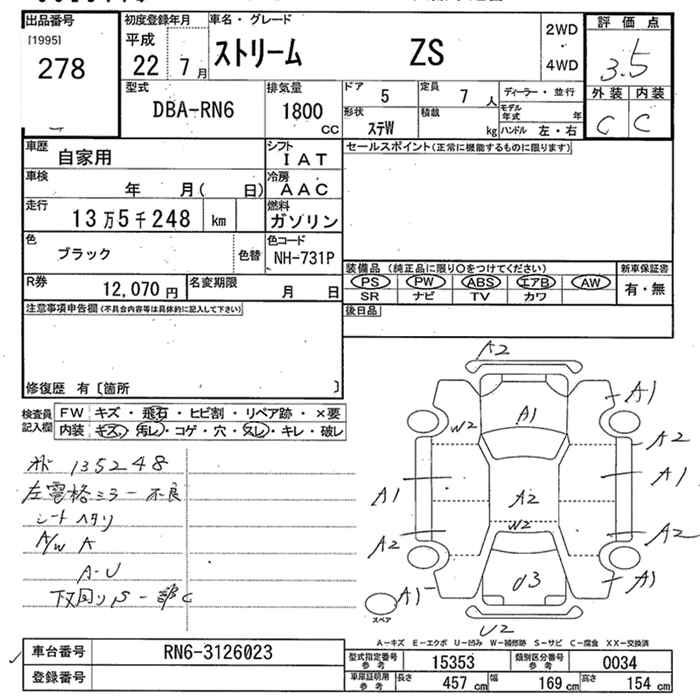 出品番号 初度登録年月 車名・グレード 評価点
[1995] 平成 ストリーム ZS 2WD
278 22 7月 4WD 3.5
外装 内装
型式 排気量 ドア 5 定員 7人 ディーラー・並行
DBA-RN6 1800cc 形状 ステW 積載 kg モデル年式 年 C C
ハンドル 左・右
車歴 自家用 シフト IAT セールスポイント(正常に機能するものに限ります)
車検 年 月( 日) 冷房 AAC
走行 13万5千248 km 燃料 ガソリン
色 ブラック 色替 色コード NH-731P
装備品(純正品に限り○をつけてください) 新車保証書
R券 12,070円 名変期限 月 日 PS PW ABS エアB AW 有・無
SR ナビ TV カワ
注意事項申告欄(不具合内容等は具体的に記入して下さい) 後日品
修復歴 有〔箇所 〕
検査員記入欄 FW キズ・飛石・ヒビ割・リペア跡・×要
内装 キズ・汚レ・コゲ・穴・スレ・キレ・破レ
135248
左電格ミラー不良
シートヘタリ
A/W A
A-U
下回りS一部C
A2
A1 A1
W2 A2
A1 A1
A2
W2
A2 A2
A1 U3 A1
スペア
U2
A-キズ E-エクボ U-凹み W-補修跡 S-サビ C-腐食 XX-交換済
車台番号 RN6-3126023 型式指定番号参考 15353 類別区分番号参考 0034
登録番号 車庫証明用参考 長さ 457cm 幅 169cm 高さ 154cm